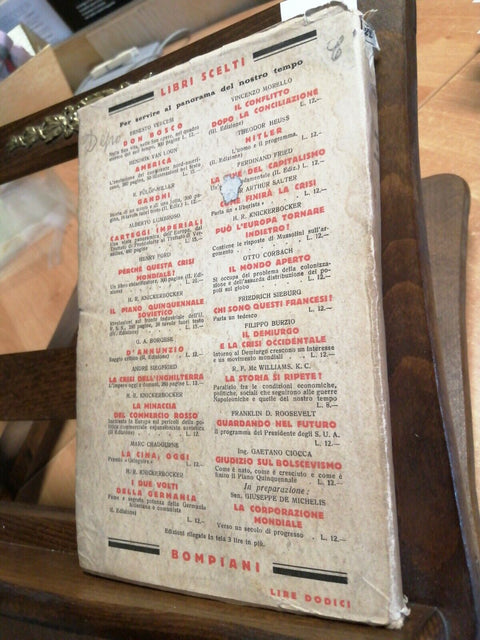 LIBRI SCELTI
Per servire al panorama del nostro tempo
ERNESTO VERCESI
DON BOSCO
HENDRIK VAN LOON
AMERICA
R. FÜLÖP-MILLER
GANDHI
ALBERTO LUMBROSO
CARTEGGI IMPERIALI
HENRY FORD
PERCHÉ QUESTA CRISI
MONDIALE?
H. R. KNICKERBOCKER
IL PIANO QUINQUENNALE
SOVIETICO
G. A. BORGESE
D'ANNUNZIO
ANDRÉ SIEGFRIED
LA CRISI DELL'INGHILTERRA
H. R. KNICKERBOCKER
LA MINACCIA
DEL COMMERCIO ROSSO
MARC CHADOURNE
LA CINA, OGGI
H. R. KNICKERBOCKER
I DUE VOLTI
DELLA GERMANIA
VINCENZO MORELLO
IL CONFLITTO
DOPO LA CONCILIAZIONE
(II. Edizione) L. 12.—
THEODOR HEUSS
HITLER
L'uomo e il programma.
(II. Edizione) L. 12.—
FERDINAND FRIED
LA FINE DEL CAPITALISMO
ARTHUR SALTER
COME FINIRÀ LA CRISI
Parla un "liberista" L. 12.—
H. R. KNICKERBOCKER
PUÒ L'EUROPA TORNARE
INDIETRO!
Contiene le risposte di Mussolini sull'argomento L. 12.—
OTTO CORBACH
IL MONDO APERTO
Si occupa del problema della colonizzazione
e dell'assurda distribuzione dei popoli
sul globo L. 12.—
FRIEDRICH SIEBURG
CHI SONO QUESTI FRANCESI?
Parla un tedesco L. 12.—
FILIPPO BURZIO
IL DEMIURGO
E LA CRISI OCCIDENTALE
Intorno al Demiurgo crescono un interesse
e un movimento mondiali L. 12.—
R. F. Mc WILLIAMS, K. C.
LA STORIA SI RIPETE?
Parallelo fra le condizioni economiche,
politiche, sociali che seguirono alle guerre
Napoleoniche e quelle del nostro tempo
L. 8.—
FRANKLIN D. ROOSEVELT
GUARDANDO NEL FUTURO
Il programma del Presidente degli S. U. A.
L. 12.—
Ing. GAETANO CIOCCA
GIUDIZIO SUL BOLSCEVISMO
Come è nato, come è cresciuto e come è
finito il Piano Quinquennale L. 12.—
In preparazione:
Sen. GIUSEPPE DE MICHELIS
LA CORPORAZIONE
MONDIALE
Verso un secolo di progresso L. 12.—
Edizioni rilegate in tela 3 lire in più.
BOMPIANI
LIRE DODICI